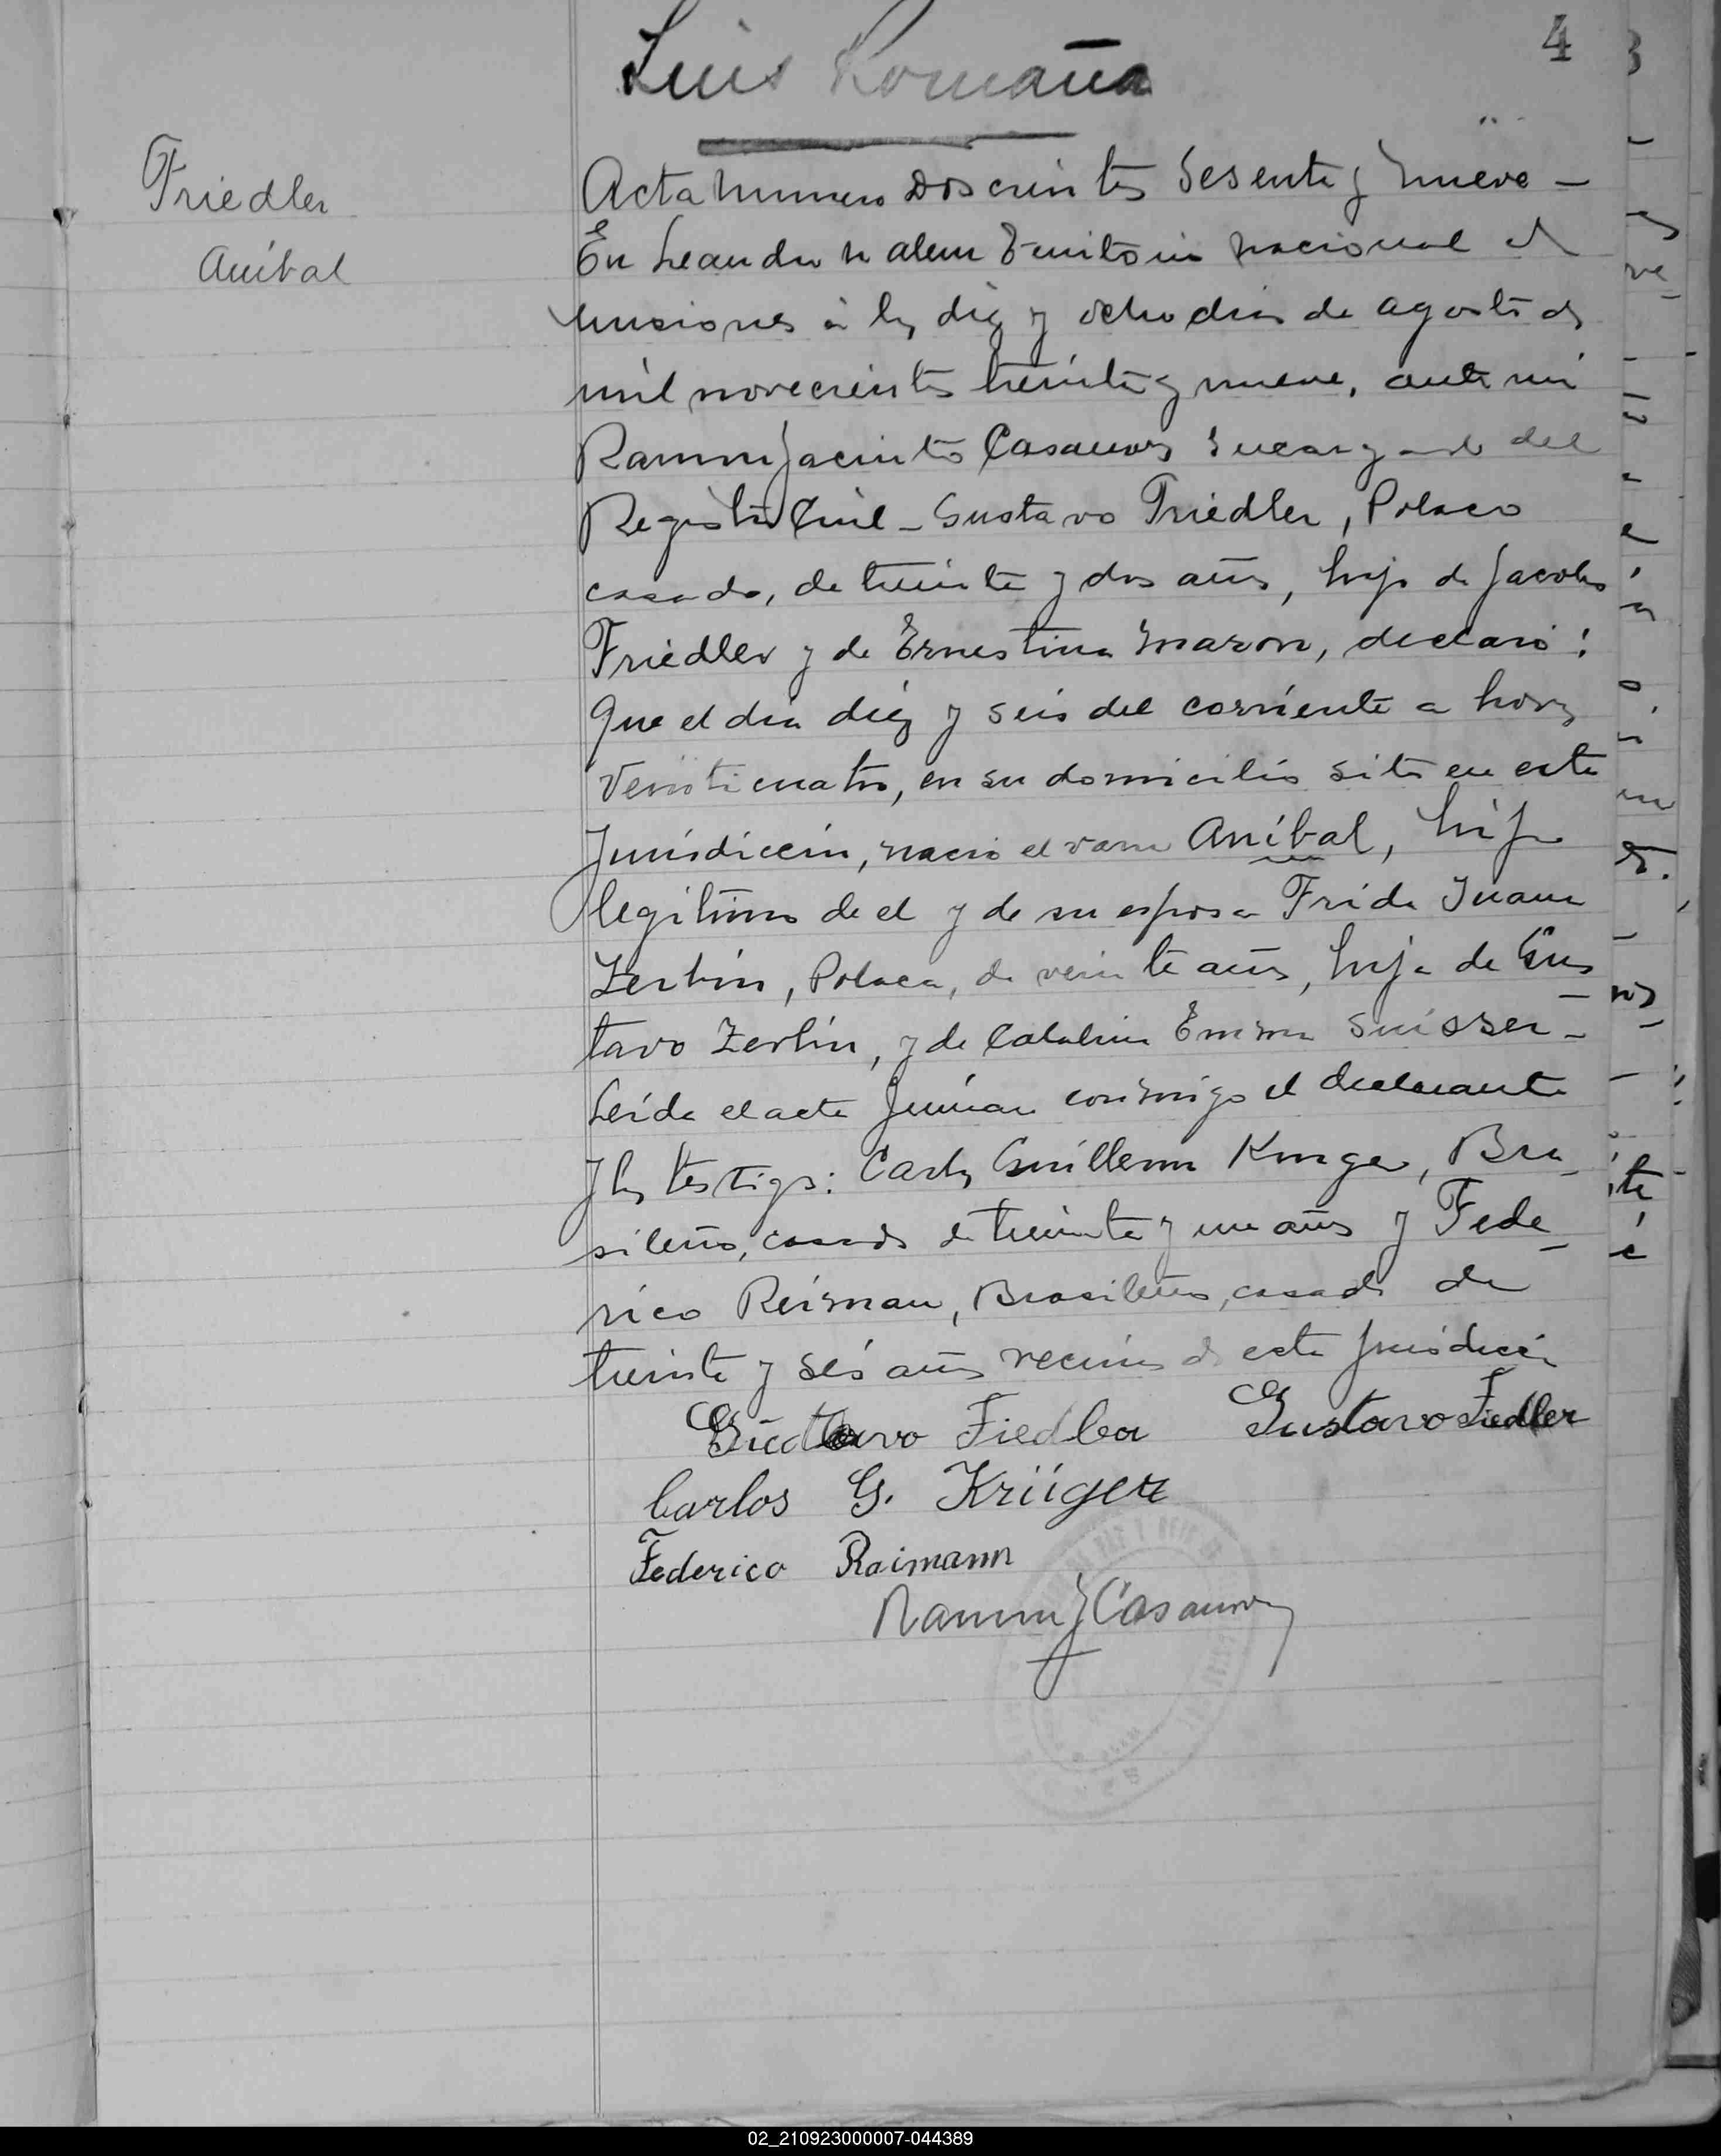 Luis Romaña
4
Friedler
Aníbal
Acta numero Doscientos Sesenta y nueve —
En Leandro N Alem Territorio Nacional de
Misiones à los diez y ocho dias de agosto de
mil novecientos treinta y nueve, ante mi
Ramon Jacinto Casanova Encargado del
Registro Civil - Gustavo Friedler, Polaco
casado, de treinta y dos años, hijo de Jacobo
Friedler y de Ernestina Maron, declaró:
Que el dia diez y seis del corriente a horas
veinticuatro, en su domicilio sito en esta
Jurisdiccion, nacio el varon Aníbal, hijo
legitimo de el y de su esposa Frida Juana
Zerbin, Polaca, de veinte años, hija de Gus
tavo Zerbin, y de Catalina Emma
Leída el acta firman conmigo el declarante
y los testigos: Carlos Guillermo Kruger, Bra
sileño, casado de treinta y un años y Fede
rico Reisman, Brasileño, casado de
treinta y seis años vecinos de esta jurisdiccion
Gustavo Fiedler Gustavo Fiedler
Carlos G. Krüger
Federico Raimann
Ramon J Casanova
02_210923000007-044389